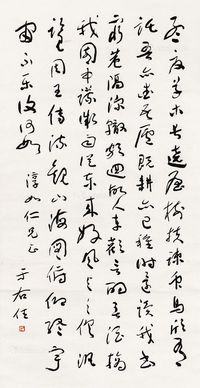 孟夏草木長遶屋樹扶疏眾鳥欣有
託吾亦愛吾廬既耕亦已種時還讀我書
窮巷隔深轍頗迴故人車歡言酌春酒摘
我園中蔬微雨從東來好風與之俱汎
覽周王傳流觀山海圖俯仰終宇
宙不樂復何如 淳如仁兄正
于右任